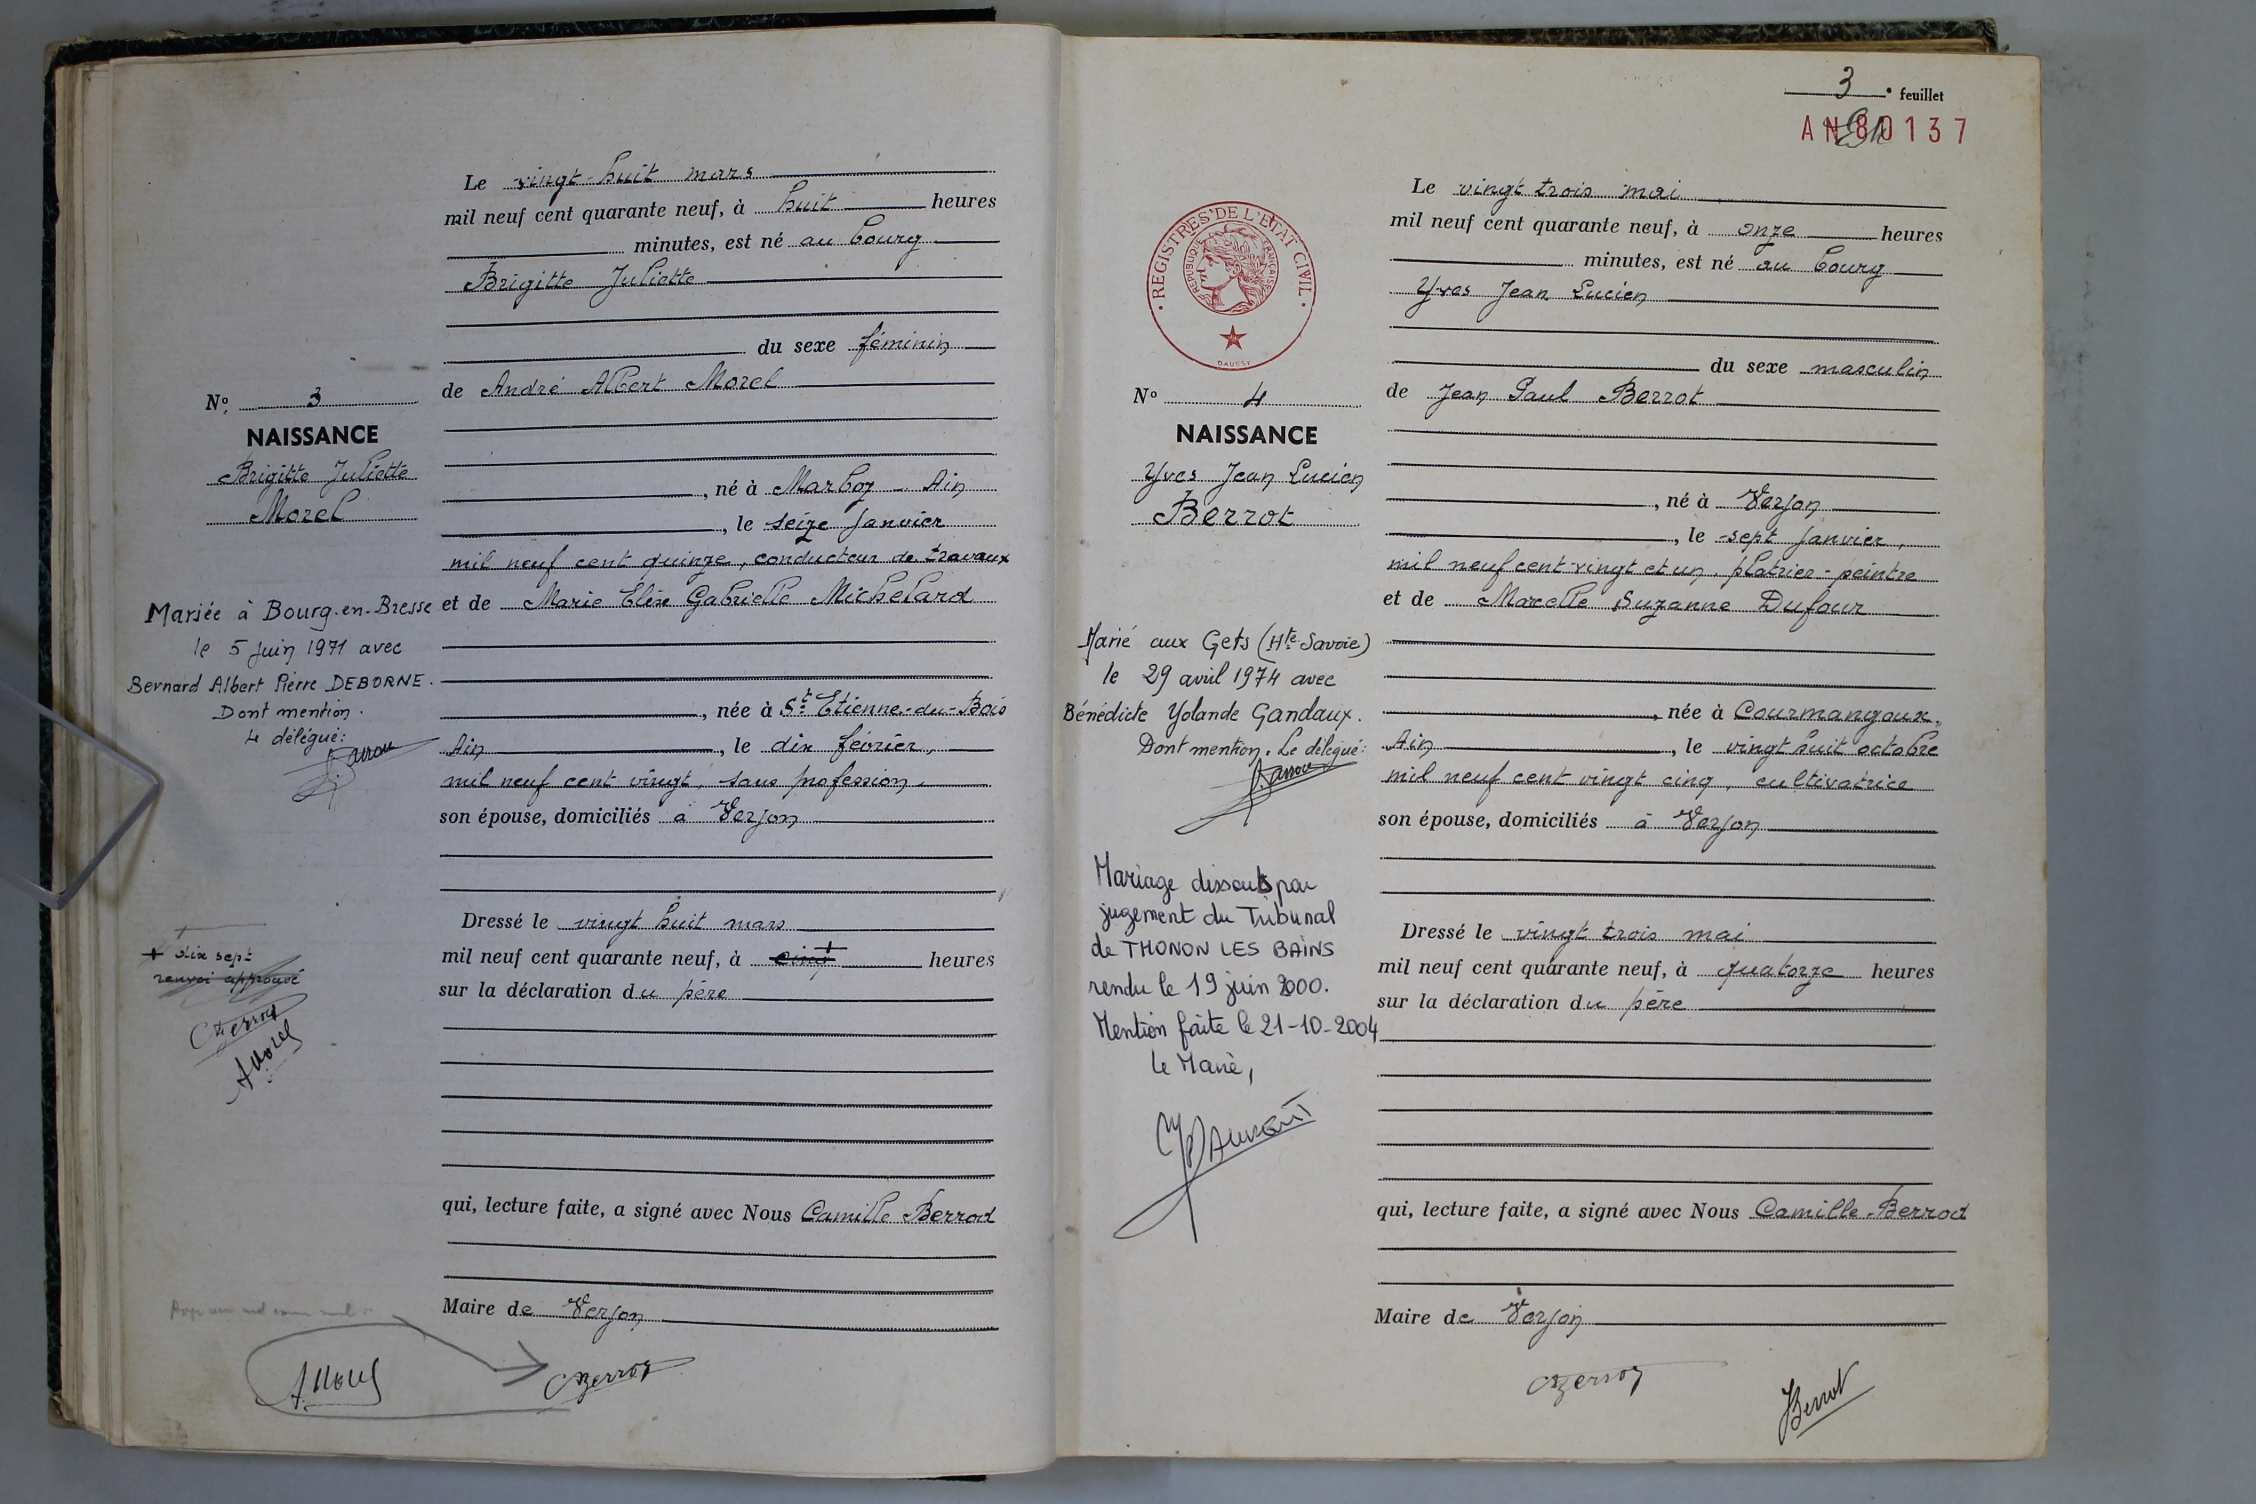 Le vingt-huit mars
mil neuf cent quarante neuf, à huit heures
minutes, est né au bourg
Brigitte Juliette
du sexe féminin
de André Albert Morel
, né à Marboz Ain
, le seize janvier
mil neuf cent quinze, conducteur de travaux
et de Marie Élise Gabrielle Michelard
, née à St Etienne-du-Bois
Ain , le dix février,
mil neuf cent vingt, sans profession,
son épouse, domiciliés à Verjon
Dressé le vingt huit mars
mil neuf cent quarante neuf, à cinq + heures
sur la déclaration du père
qui, lecture faite, a signé avec Nous Camille Berrod
Maire de Verjon
AMorel
CBerrod
No. 3
NAISSANCE
Brigitte Juliette
Morel
Mariée à Bourg-en-Bresse
le 5 juin 1971 avec
Bernard Albert Pierre DEBORNE.
Dont mention.
le délégué:
+ dix sept
renvoi approuvé
CBerrod
AMorel
3e feuillet
AN80137
REGISTRES DE L'ETAT CIVIL
REPUBLIQUE FRANÇAISE
DAUSSY
No 4
NAISSANCE
Yves Jean Lucien
Berrot
Marié aux Gets (Hte Savoie)
le 29 avril 1974 avec
Bénédicte Yolande Gandaux.
Dont mention. Le délégué:
Mariage dissout par
jugement du Tribunal
de THONON LES BAINS
rendu le 19 juin 2000.
Mention faite le 21-10-2004
le Maire,
Le vingt trois mai
mil neuf cent quarante neuf, à onze heures
minutes, est né au bourg
Yves Jean Lucien
du sexe masculin
de Jean Paul Berrot
, né à Verjon
, le sept janvier,
mil neuf cent vingt et un, platrier-peintre
et de Marcelle Suzanne Dufour
, née à Courmangoux,
Ain , le vingt huit octobre
mil neuf cent vingt cinq, cultivatrice
son épouse, domiciliés à Verjon
Dressé le vingt trois mai
mil neuf cent quarante neuf, à quatorze heures
sur la déclaration du père
qui, lecture faite, a signé avec Nous Camille Berrod
Maire de Verjon
CBerrod
JBerrot